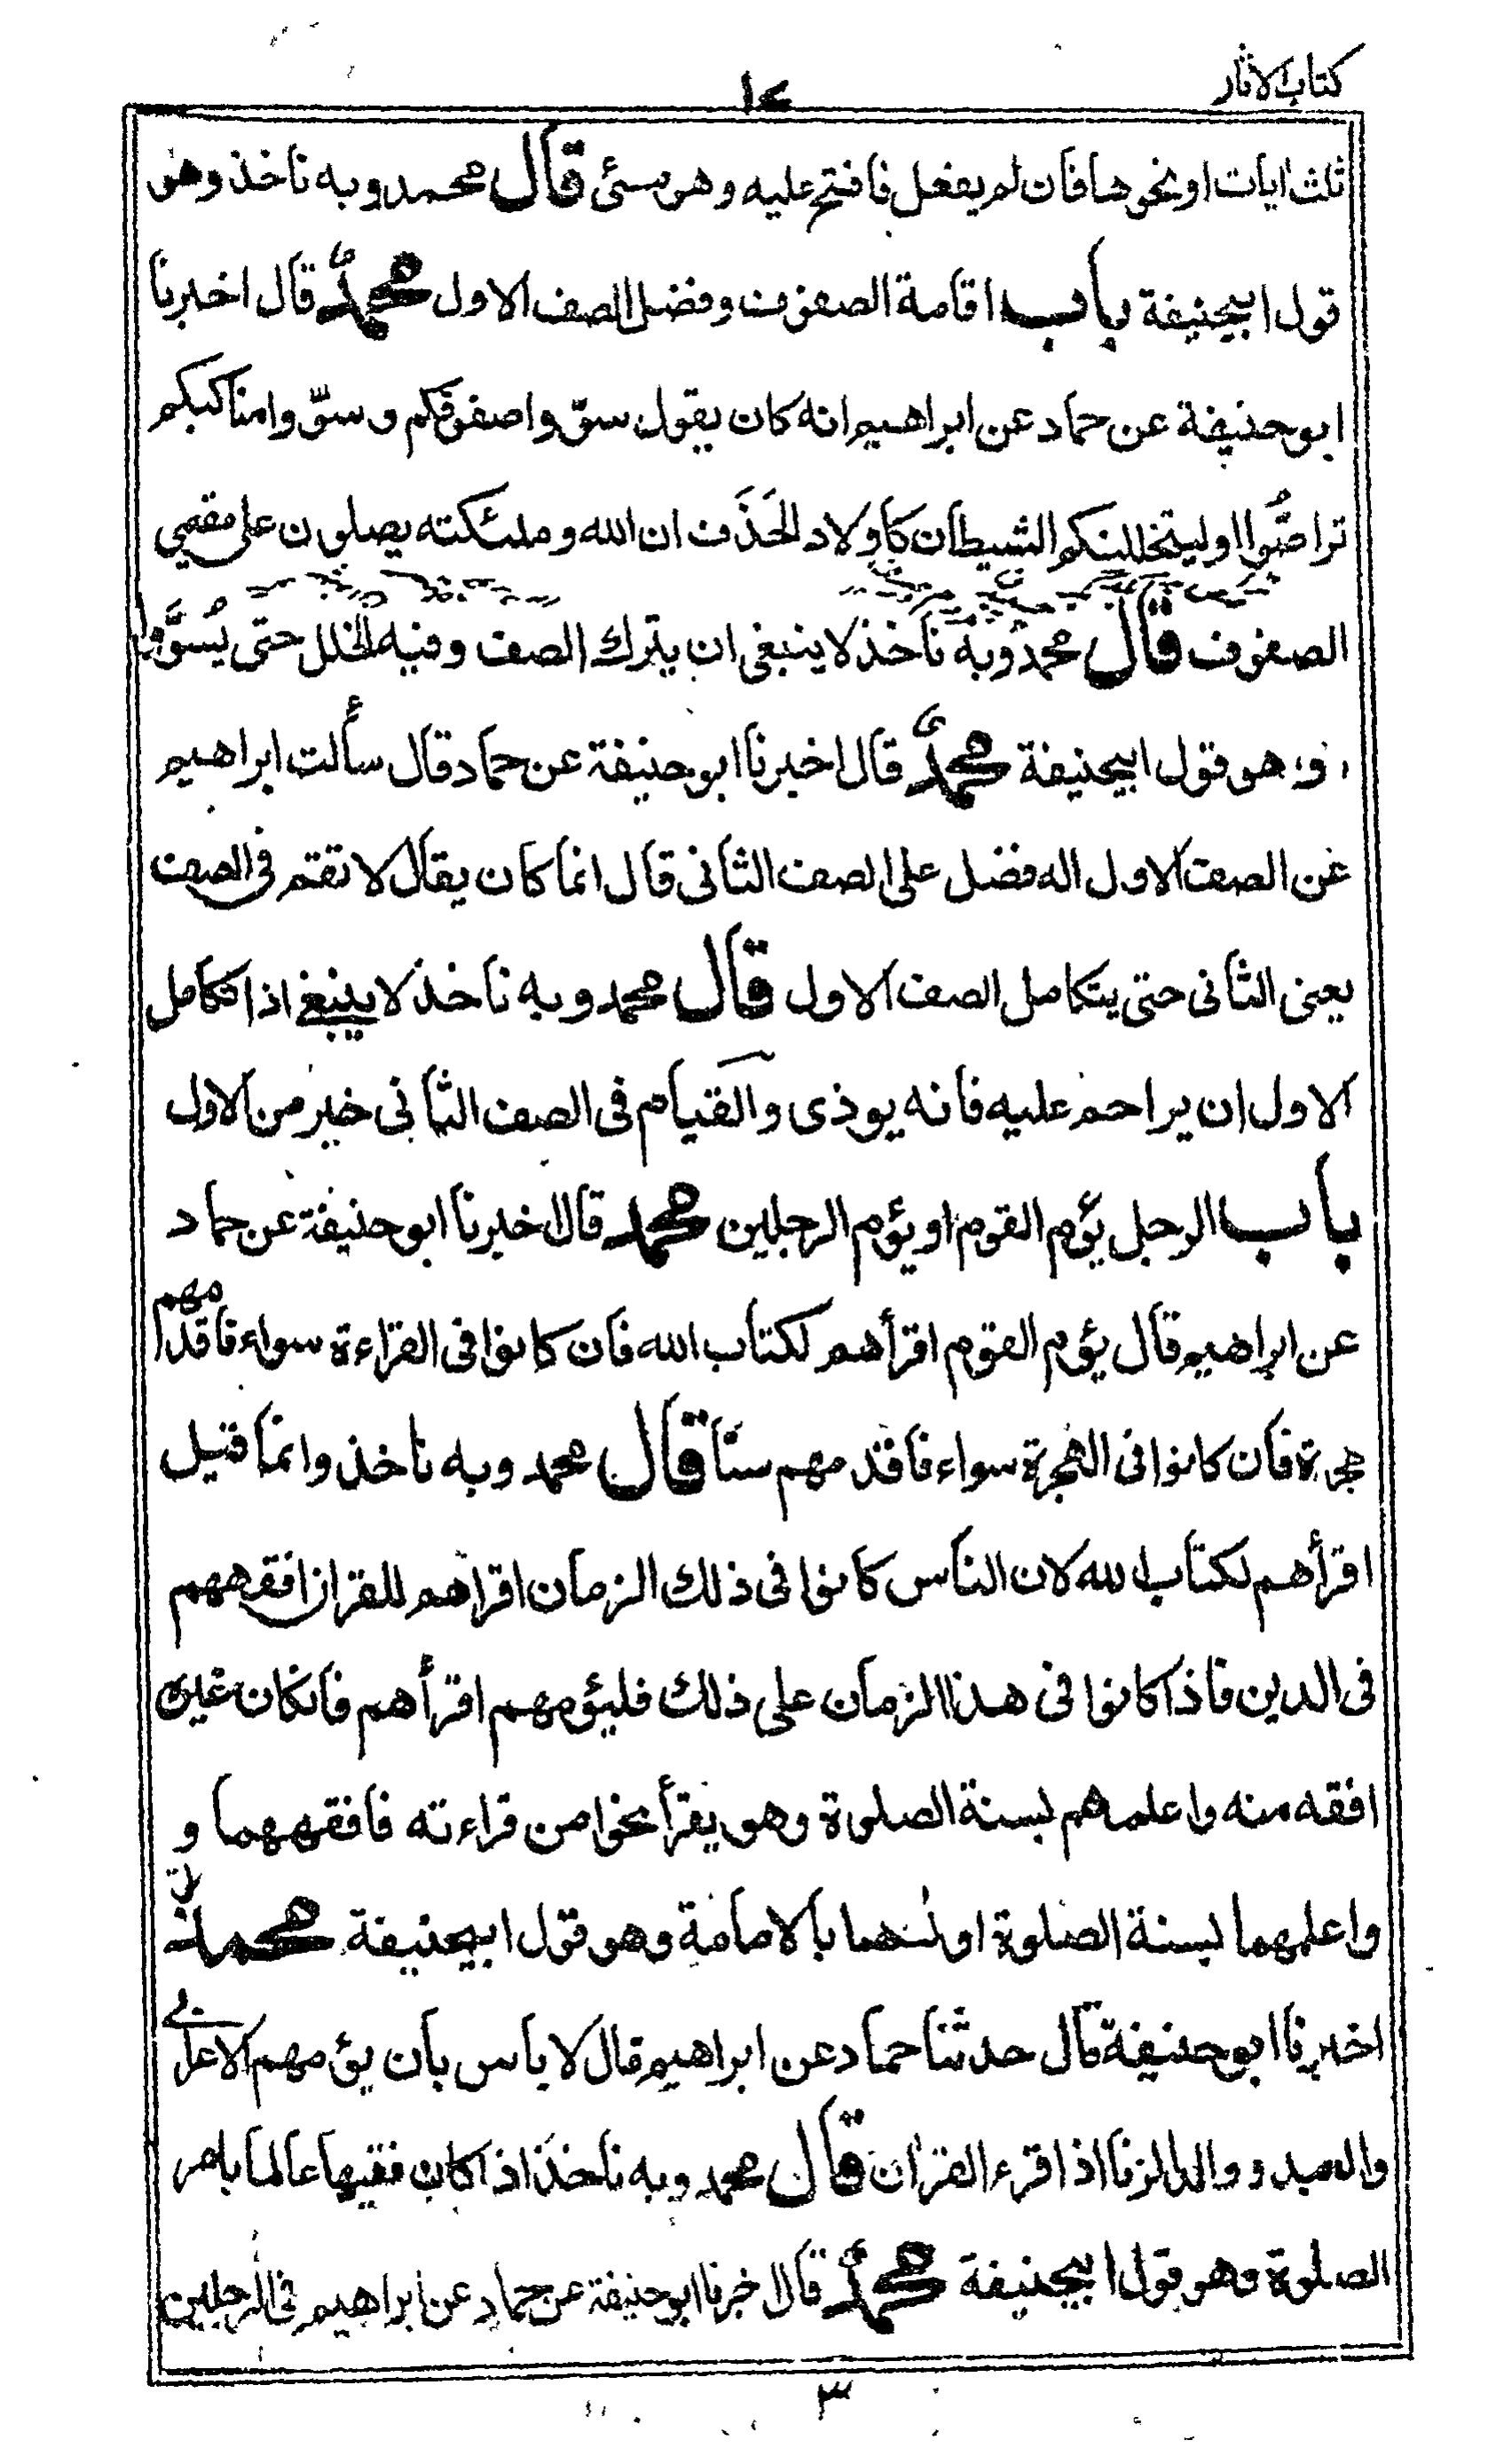 كتاب الاثار
١٧
ثلث ايات او نحوها فان لم يفعل فافتح عليه وهو مسئ قال محمد وبه ناخذ وهو
قول ابيحنيفة باب اقامة الصفوف وفضل الصف الاول محمد قال اخبرنا
ابو حنيفة عن حماد عن ابراهيم انه كان يقول سوّوا صفوفكم وسوّوا مناكبكم
تراصّوا او ليتخللنكم الشيطان كاولاد الحَذَف ان الله وملئكته يصلون على مقيمي
الصفوف قال محمد وبه ناخذ لا ينبغي ان يترك الصف وفيه الخلل حتى يُسَوَّوا
وهو قول ابيحنيفة محمد قال اخبرنا ابو حنيفة عن حماد قال سألت ابراهيم
عن الصف الاول اله فضل على الصف الثانى قال انما كان يقال لا تقم فى الصف
يعنى الثانى حتى يتكامل الصف الاول قال محمد وبه ناخذ لا ينبغى اذا تكامل
الاول ان يزاحم عليه فانه يوذى والقيام فى الصف الثانى خير من الاول
باب الرجل يؤم القوم او يؤم الرجلين محمد قال اخبرنا ابو حنيفة عن حماد
عن ابراهيم قال يؤم القوم اقرأهم لكتاب الله فان كانوا فى القراءة سواء فاقدمهم
هجرة فان كانوا فى الهجرة سواء فاقدمهم سنا قال محمد وبه ناخذ وانما قيل
اقرأهم لكتاب الله لان الناس كانوا فى ذلك الزمان اقراهم للقران افقههم
فى الدين فاذا كانوا فى هذا الزمان على ذلك فليؤمهم اقرأهم فانكان غيره
افقه منه واعلمهم بسنة الصلوة وهو يقرأ نحوا من قراءته فافقههما و
واعلمهما بسنة الصلوة اولٰهما بالامامة وهو قول ابيحنيفة محمد قال
اخبرنا ابو حنيفة قال حدثنا حماد عن ابراهيم قال لا باس بان يؤمهم الاعرابي
والعبد وولد الزنا اذا قرء القران قال محمد وبه ناخذ اذا كان فقيها عالما بامر
الصلوة وهو قول ابيحنيفة محمد قال اخبرنا ابو حنيفة عن حماد عن ابراهيم فى الرجلين
٣